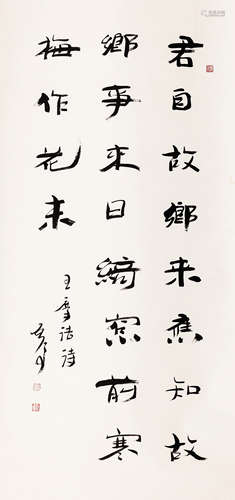 君自故鄉来應知故
鄉事来日綺窓前寒
梅作花未
王摩詰詩